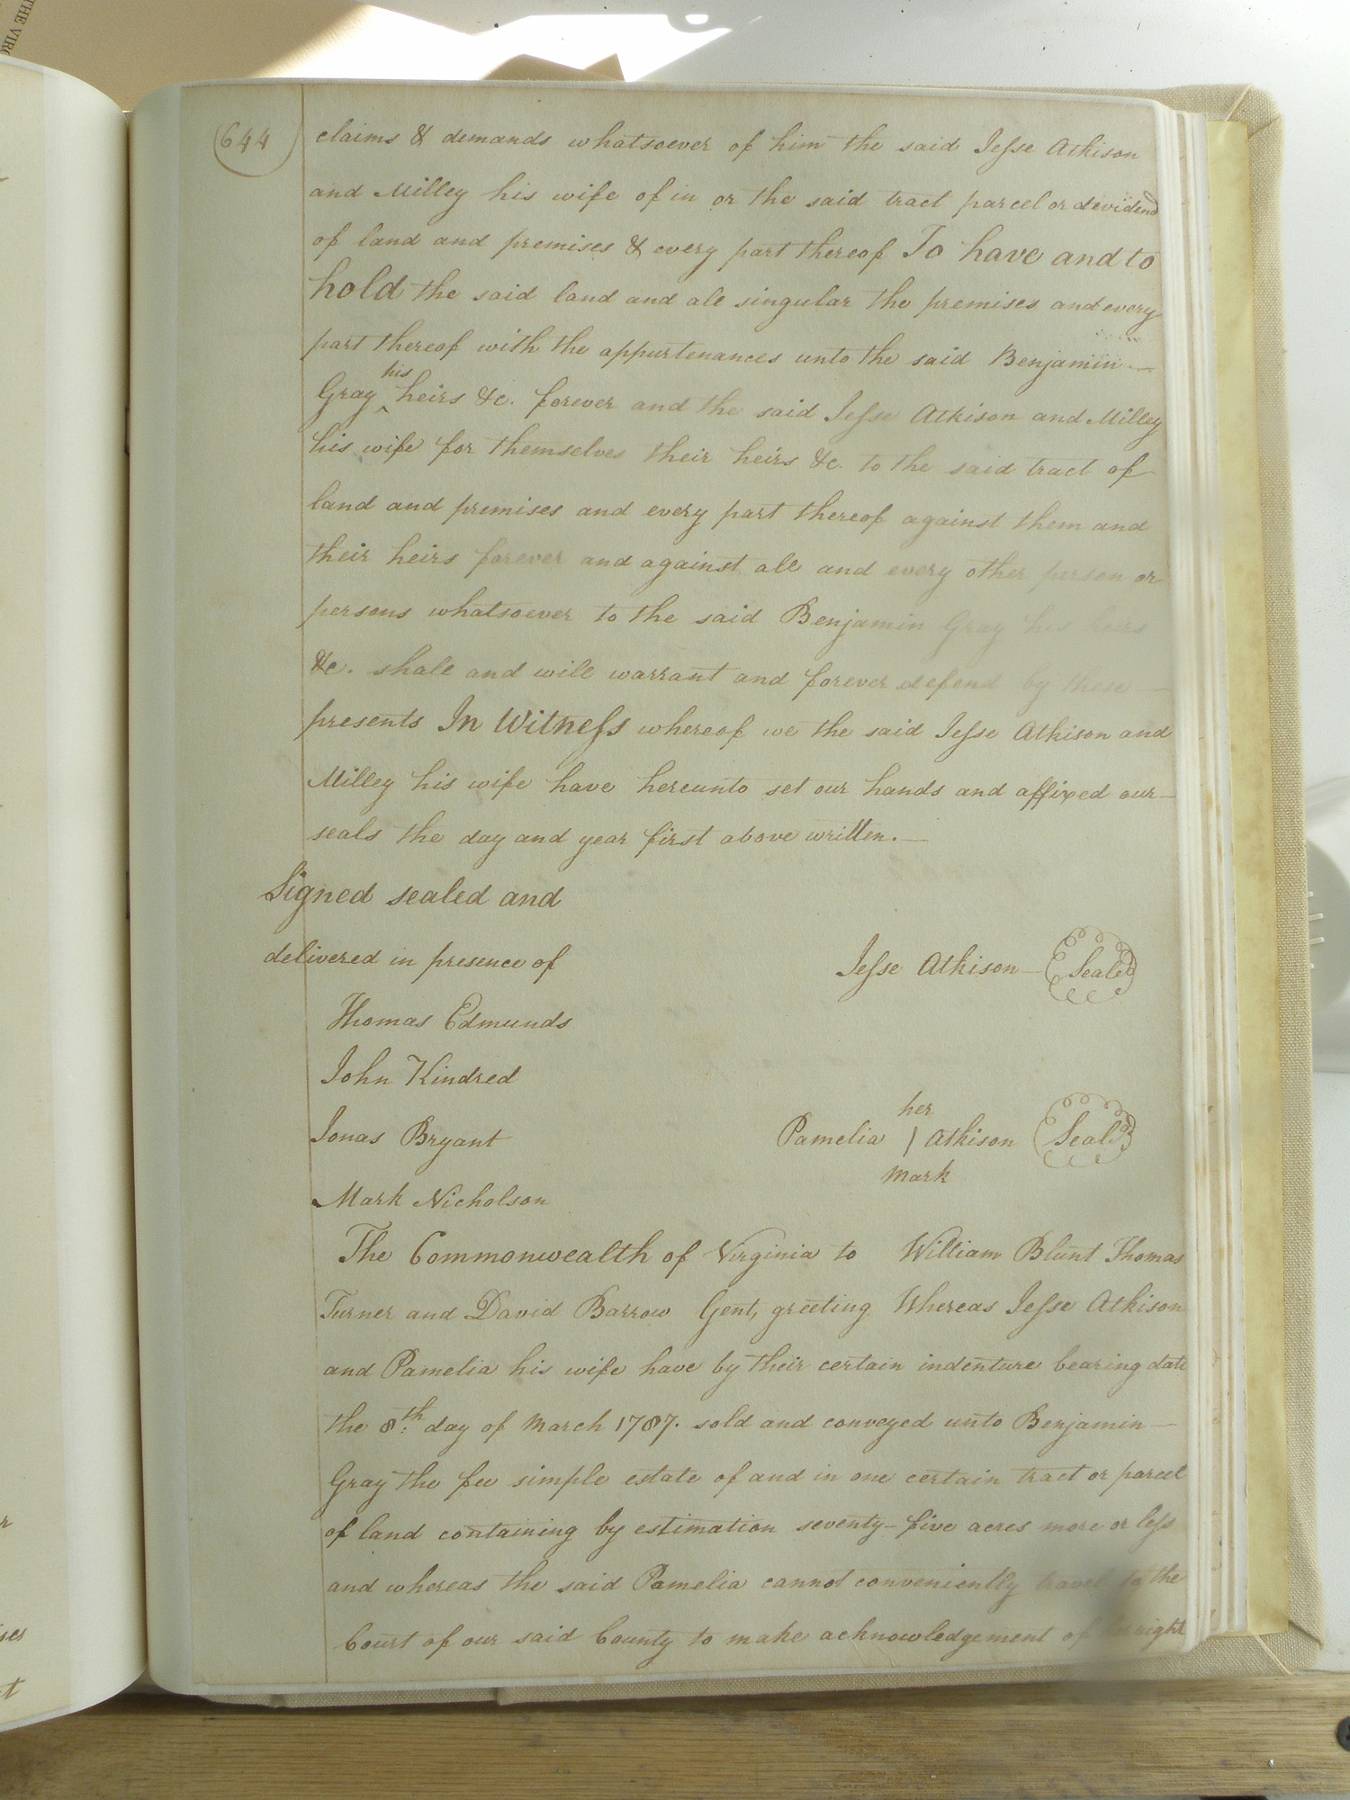 THE VIR
644
claims & demands whatsoever of him the said Jesse Atkison
and Milley his wife of in or the said tract parcel or devidend
of land and premises & every part thereof To have and to
hold the said land and all singular the premises and every
part thereof with the appurtenances unto the said Benjamin
his
Gray heirs &c. forever and the said Jesse Atkison and Milley
his wife for themselves their heirs &c. to the said tract of
land and premises and every part thereof against them and
their heirs forever and against all and every other person or
persons whatsoever to the said Benjamin Gray his heirs
&c. shall and will warrant and forever defend by these
presents In Witness whereof we the said Jesse Atkison and
Milley his wife have hereunto set our hands and affixed our
seals the day and year first above written.
Signed sealed and
delivered in presence of
Jesse Atkison Seal
Thomas Edmunds
John Kindred
her
Jonas Bryant
Pamelia ) Atkison Seal
mark
Mark Nicholson
The Commonwealth of Virginia to William Blunt Thomas
Turner and David Barrow Gent, greeting Whereas Jesse Atkison
and Pamelia his wife have by their certain indenture bearing date
the 8th day of March 1787. sold and conveyed unto Benjamin
Gray the fee simple estate of and in one certain tract or parcel
of land containing by estimation seventy-five acres more or less
and whereas the said Pamelia cannot conveniently travel to the
Court of our said County to make acknowledgement of her right